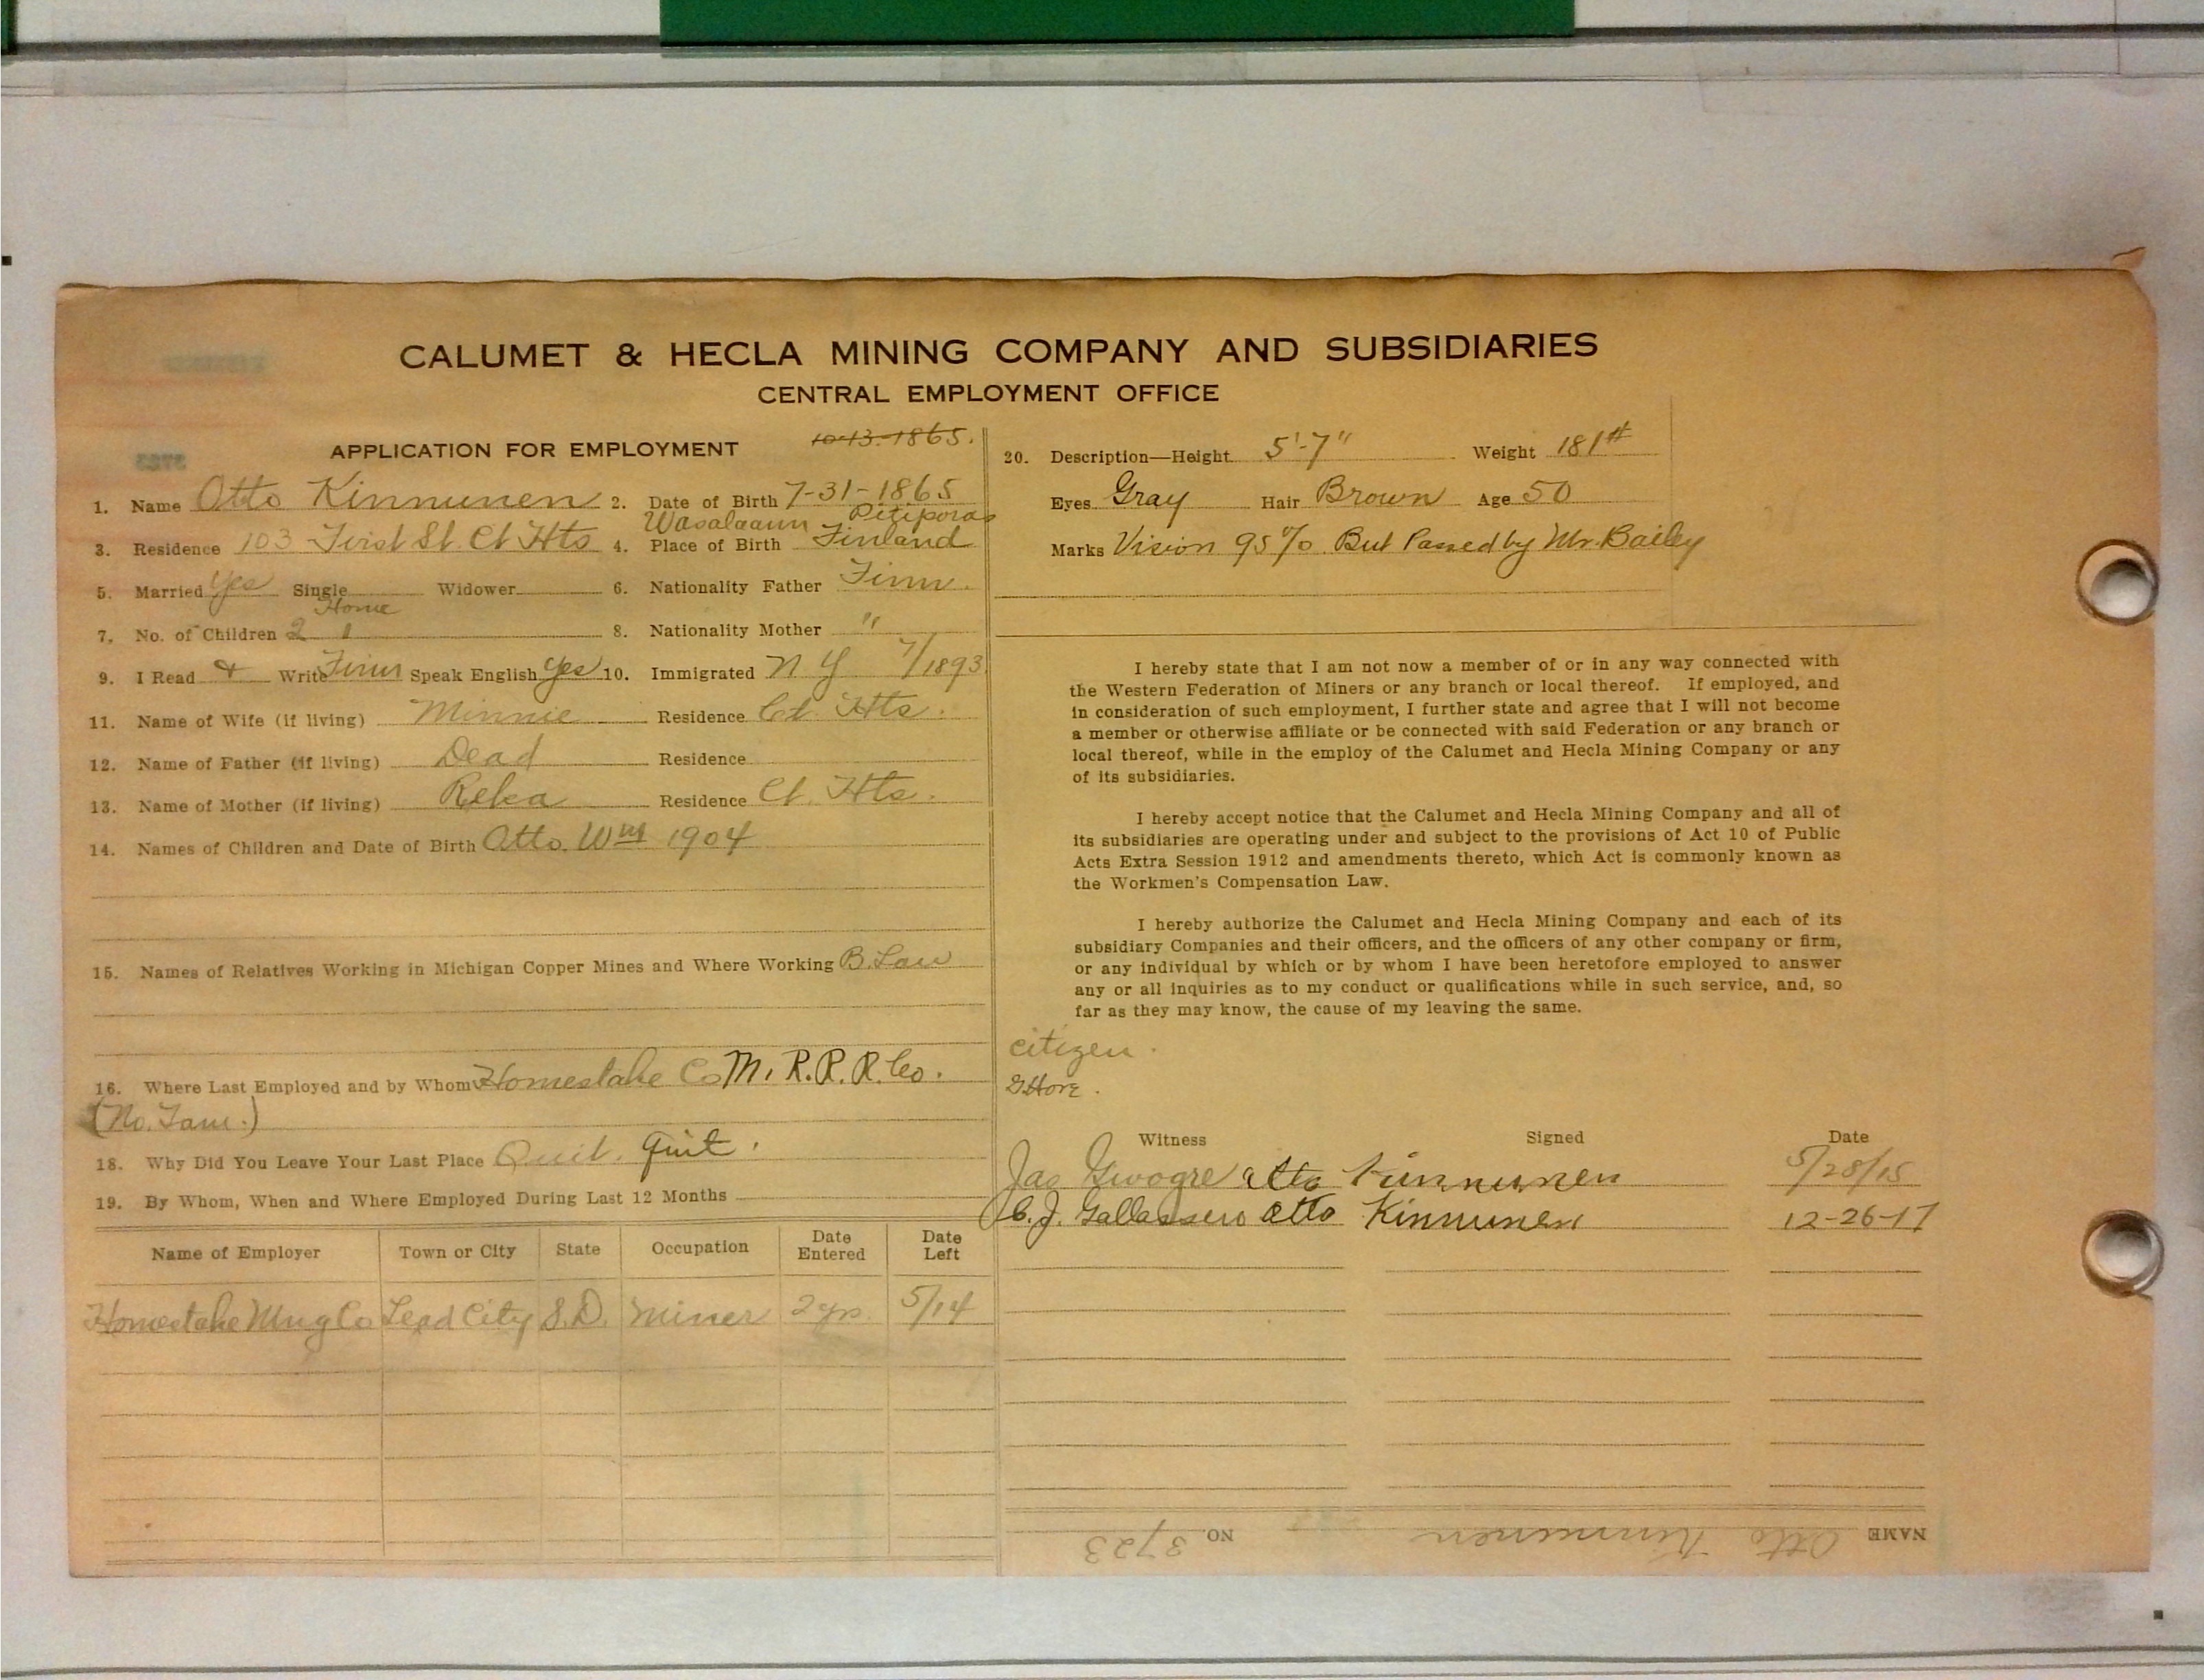 CALUMET & HECLA MINING COMPANY AND SUBSIDIARIES
CENTRAL EMPLOYMENT OFFICE
APPLICATION FOR EMPLOYMENT
10-13-1865.
1. Name Otto Kinnunen 2. Date of Birth 7-31-1865
3. Residence 103 First St. Ct Hts 4. Place of Birth Finland
5. Married Yes Single Widower 6. Nationality Father Finn.
Home
7. No. of Children 2 1 8. Nationality Mother "
9. I Read & Write Finn Speak English Yes 10. Immigrated N Y 7/1893
11. Name of Wife (if living) Minnie Residence Ct. Hts.
12. Name of Father (if living) Dead Residence
13. Name of Mother (if living) Residence Ct. Hts.
14. Names of Children and Date of Birth Otto. Wm 1904
15. Names of Relatives Working in Michigan Copper Mines and Where Working B. Law
16. Where Last Employed and by Whom Homestake Co M. R. R. R. Co.
18. Why Did You Leave Your Last Place Quit. Quit.
19. By Whom, When and Where Employed During Last 12 Months
Name of Employer Town or City State Occupation Date Entered Date Left
Homestake Mng Co Lead City S.D. Miner 2 yrs. 5/14
20. Description—Height 5'-7" Weight 181#
Eyes Gray Hair Brown Age 50
Marks Vision 95% But Passed by Mr. Bailey
I hereby state that I am not now a member of or in any way connected with
the Western Federation of Miners or any branch or local thereof. If employed, and
in consideration of such employment, I further state and agree that I will not become
a member or otherwise affiliate or be connected with said Federation or any branch or
local thereof, while in the employ of the Calumet and Hecla Mining Company or any
of its subsidiaries.
I hereby accept notice that the Calumet and Hecla Mining Company and all of
its subsidiaries are operating under and subject to the provisions of Act 10 of Public
Acts Extra Session 1912 and amendments thereto, which Act is commonly known as
the Workmen's Compensation Law.
I hereby authorize the Calumet and Hecla Mining Company and each of its
subsidiary Companies and their officers, and the officers of any other company or firm,
or any individual by which or by whom I have been heretofore employed to answer
any or all inquiries as to my conduct or qualifications while in such service, and, so
far as they may know, the cause of my leaving the same.
citizen.
Witness Signed Date
Jas Otto Kinnunen 5/28/15
C. J. Otto Kinnunen 12-26-17
NAME Otto Kinnunen NO. 3723